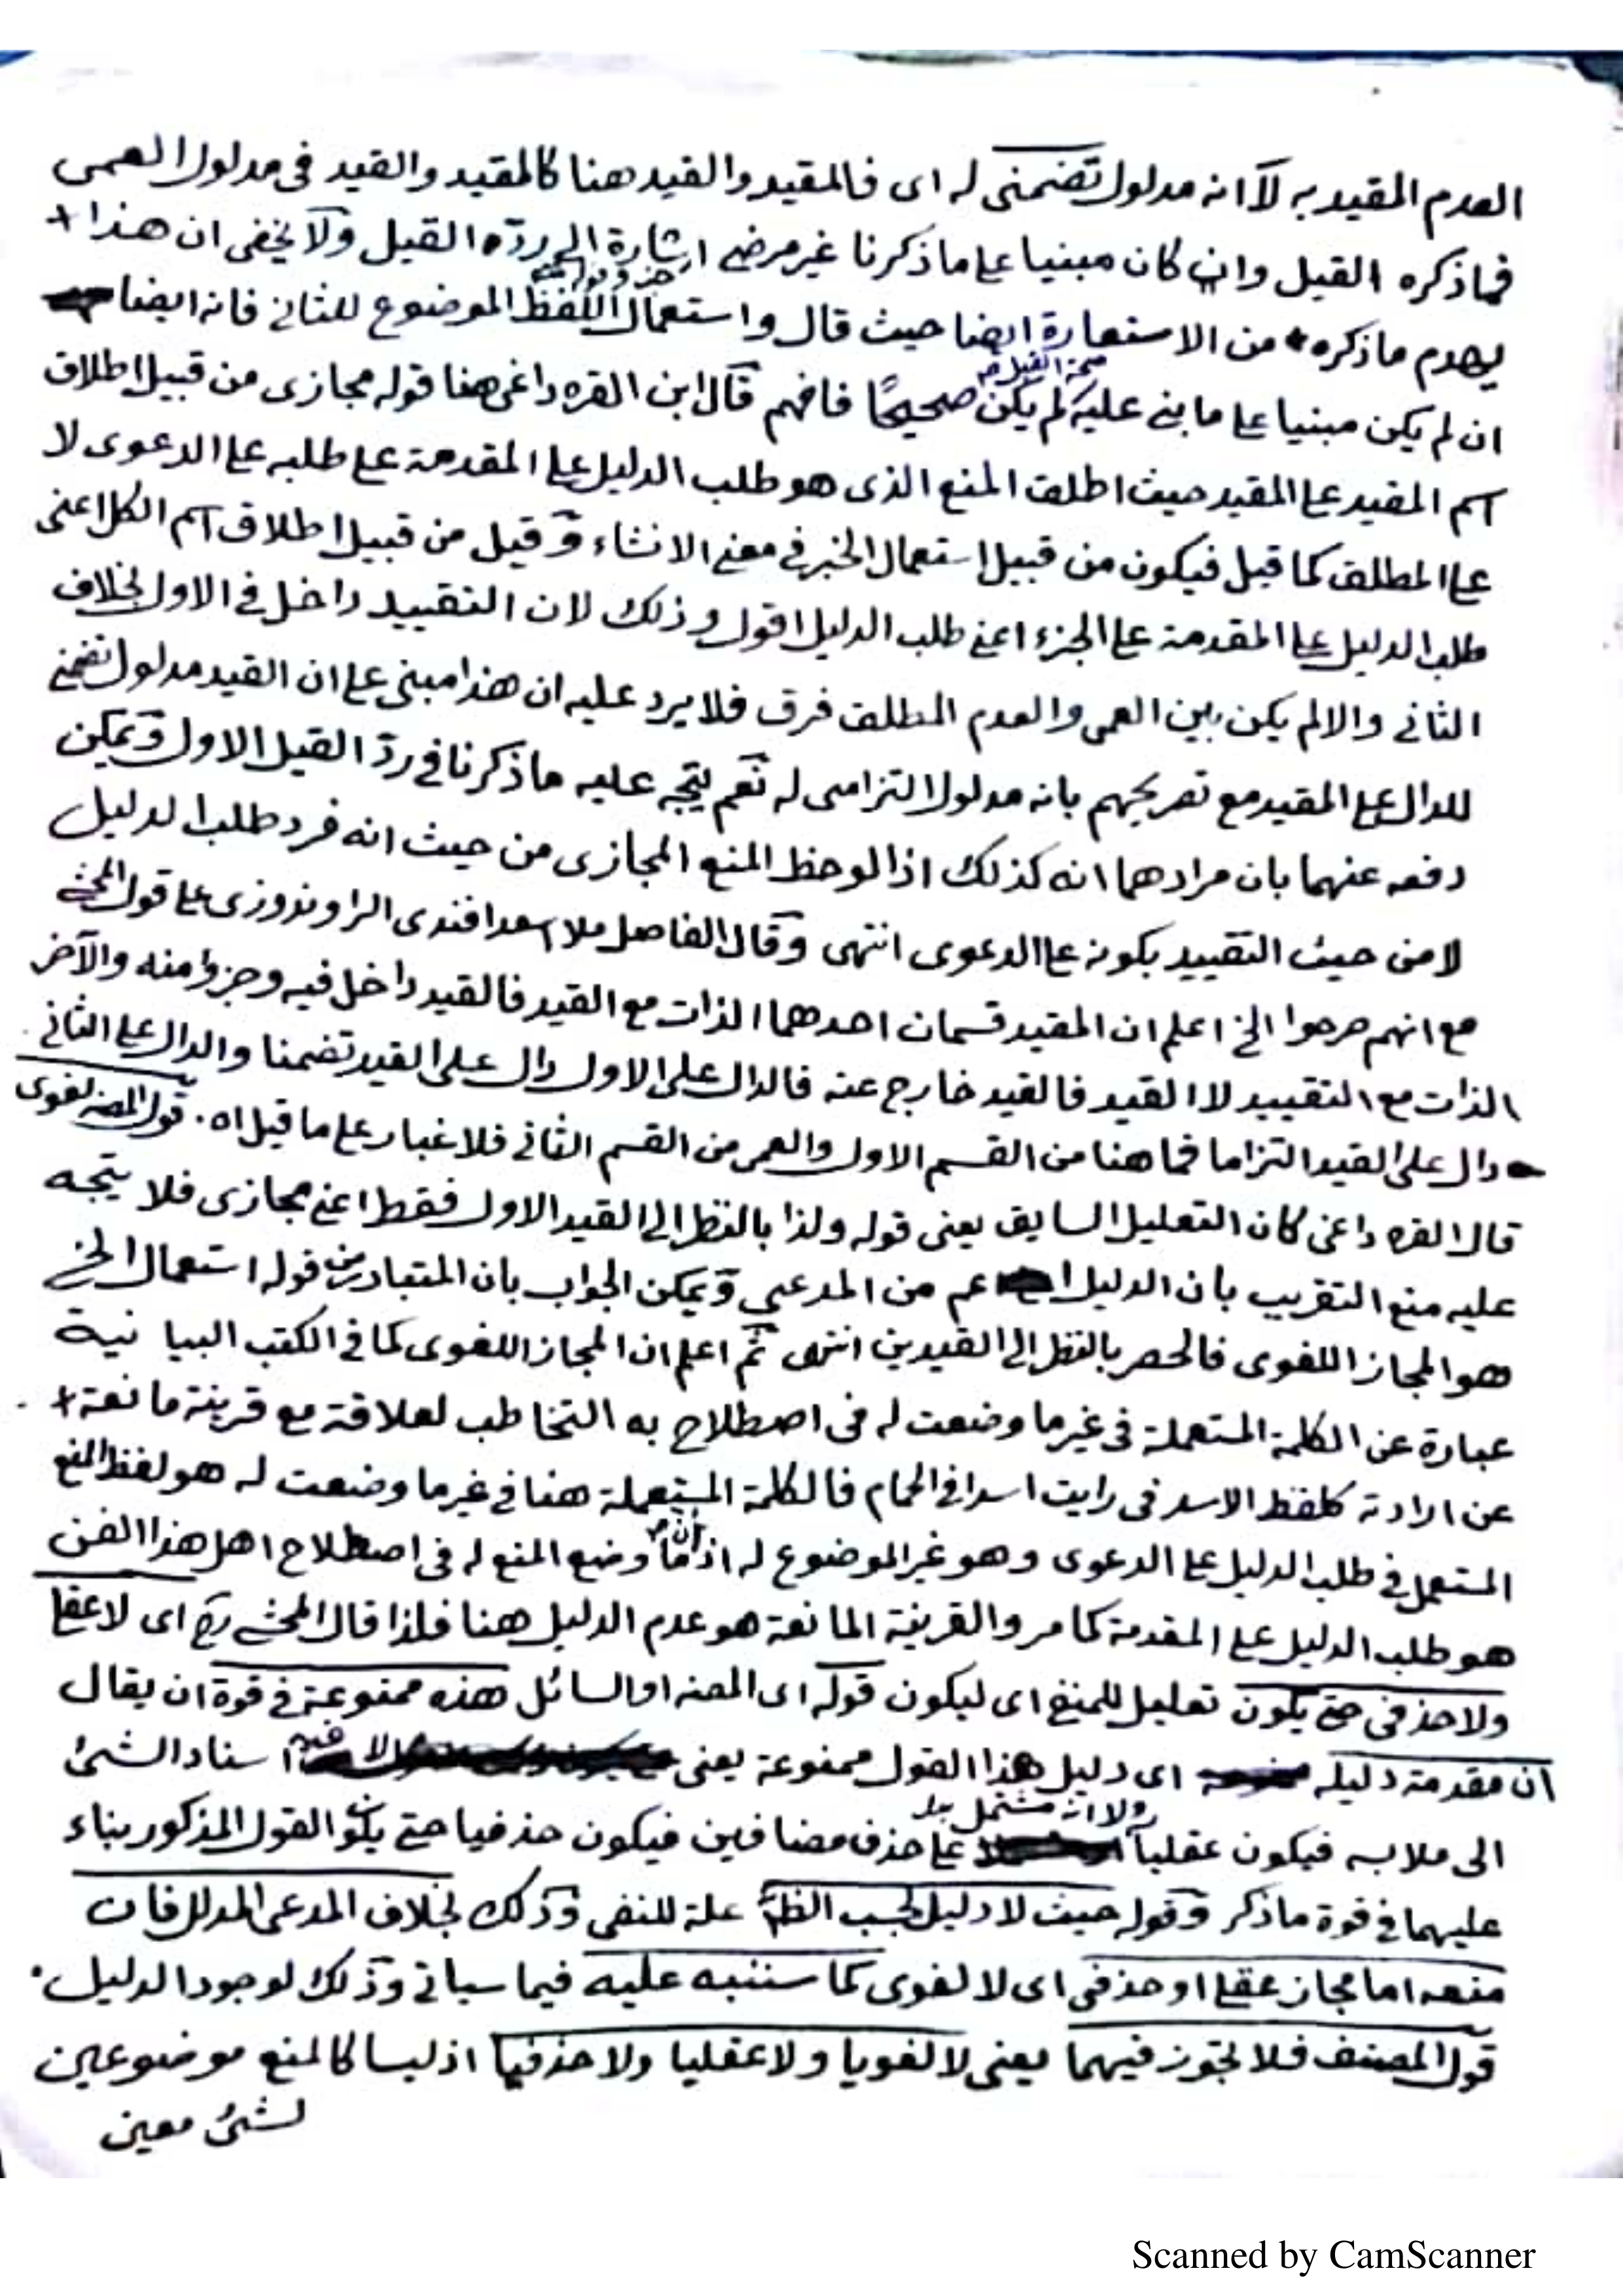 العدم المقيد به لا انه مدلول تضمنى له اى فالمقيد والقيد هنا كالمقيد والقيد فى مدلول العمى
فماذكره القيل وان كان مبنيا على ماذكرنا غير مرضى اشارة الى ردّه القيل ولا يخفى ان هذا +
يهدم ماذكره من الاستعارة ايضا حيث قال واستعمال اللفظ الموضوع للثانى فانه ايضا
صحة القيل
ان لم يكن مبنيا على ما بنى عليه لم يكن صحيحًا فافهم قال ابن القره داغى هنا قوله مجازى من قبيل اطلاق
اسم المقيد على المقيد حيث اطلق المنع الذى هو طلب الدليل على المقدمة على طلبه على الدعوى لا
على المطلق كما قيل فيكون من قبيل استعمال الخبر فى معنى الانشاء وقيل من قبيل اطلاق اسم الكل اعنى
طلب الدليل على المقدمة على الجزء اعنى طلب الدليل اقول وذلك لان التقييد داخل فى الاول بخلاف
الثانى والا لم يكن بين العمى والعدم المطلق فرق فلا يرد عليه ان هذا مبنى على ان القيد مدلول تضمنى
للدال على المقيد مع تصريحهم بانه مدلول التزامى له نعم يتجه عليه ماذكرنا فى ردّ القيل الاول ويمكن
دفعه عنهما بان مرادهما انه كذلك اذا لوحظ المنع المجازى من حيث انه فرد طلب الدليل
لا من حيث التقييد بكونه على الدعوى انتهى وقال الفاضل ملا اسعد افندى الراوندوزى على قول المحشى
مع انهم صرحوا الخ اعلم ان المقيد قسمان احدهما الذات مع القيد فالقيد داخل فيه وجزء منه والآخر
الذات مع التقييد لا القيد فالقيد خارج عنه فالدال على الاول دال على القيد تضمنا والدال على الثانى
دال على القيد التزاما فما هنا من القسم الاول والعمى من القسم الثانى فلا غبار على ما قيل اه . قول المصـ لغوى
قال القره داغى كان التعليل السابق يعنى قوله ولذا بالنظر الى القيد الاول فقط اعنى مجازى فلا يتجه
عليه منع التقريب بان الدليل اعم من المدعى ويمكن الجواب بان المتبادر من قوله استعمال الخ
هو المجاز اللغوى فالحصر بالنظر الى القيدين انتهى ثم اعلم ان المجاز اللغوى كما فى الكتب البيا نية
عبارة عن الكلمة المستعملة فى غير ما وضعت له فى اصطلاح به التخاطب لعلاقة مع قرينة مانعة +
عن ارادته كلفظ الاسد فى رايت اسدا فى الحمام فالكلمة المستعملة هنا فى غير ما وضعت له هو لفظ المنع
المستعمل فى طلب الدليل على الدعوى وهو غير الموضوع له اذ ما وضع المنع له فى اصطلاح اهل هذا الفن
هو طلب الدليل على المقدمة كما مر والقرينة المانعة هو عدم الدليل هنا فلذا قال المحشى رح اى لا عقلى
ولا حذفى حتى يكون تعليل للمنفى اى ليكون قوله اى المصـ او السائل هذه ممنوعة فى قوة ان يقال
ان مقدمة دليله اى دليل هذا القول ممنوعة يعنى اسناد الشئ
ولا انه مشتمل
الى ملابسه فيكون عقليا على حذف مضافين فيكون حذفيا حتى يكون القول المذكور بناء
عليهما فى قوة ماذكر وقوله حيث لا دليل بحسب الظ علة للنفى وذلك بخلاف المدعى المدلل فان
منعه اما مجاز عقلى او حذفى اى لا لغوى كما سننبه عليه فيما سياتى وذلك لوجود الدليل .
قول المصنف فلا تجوز فيهما يعنى لا لغويا ولا عقليا ولا حذفيا اذ ليسا كالمنع موضوعين
لشئ معين
Scanned by CamScanner